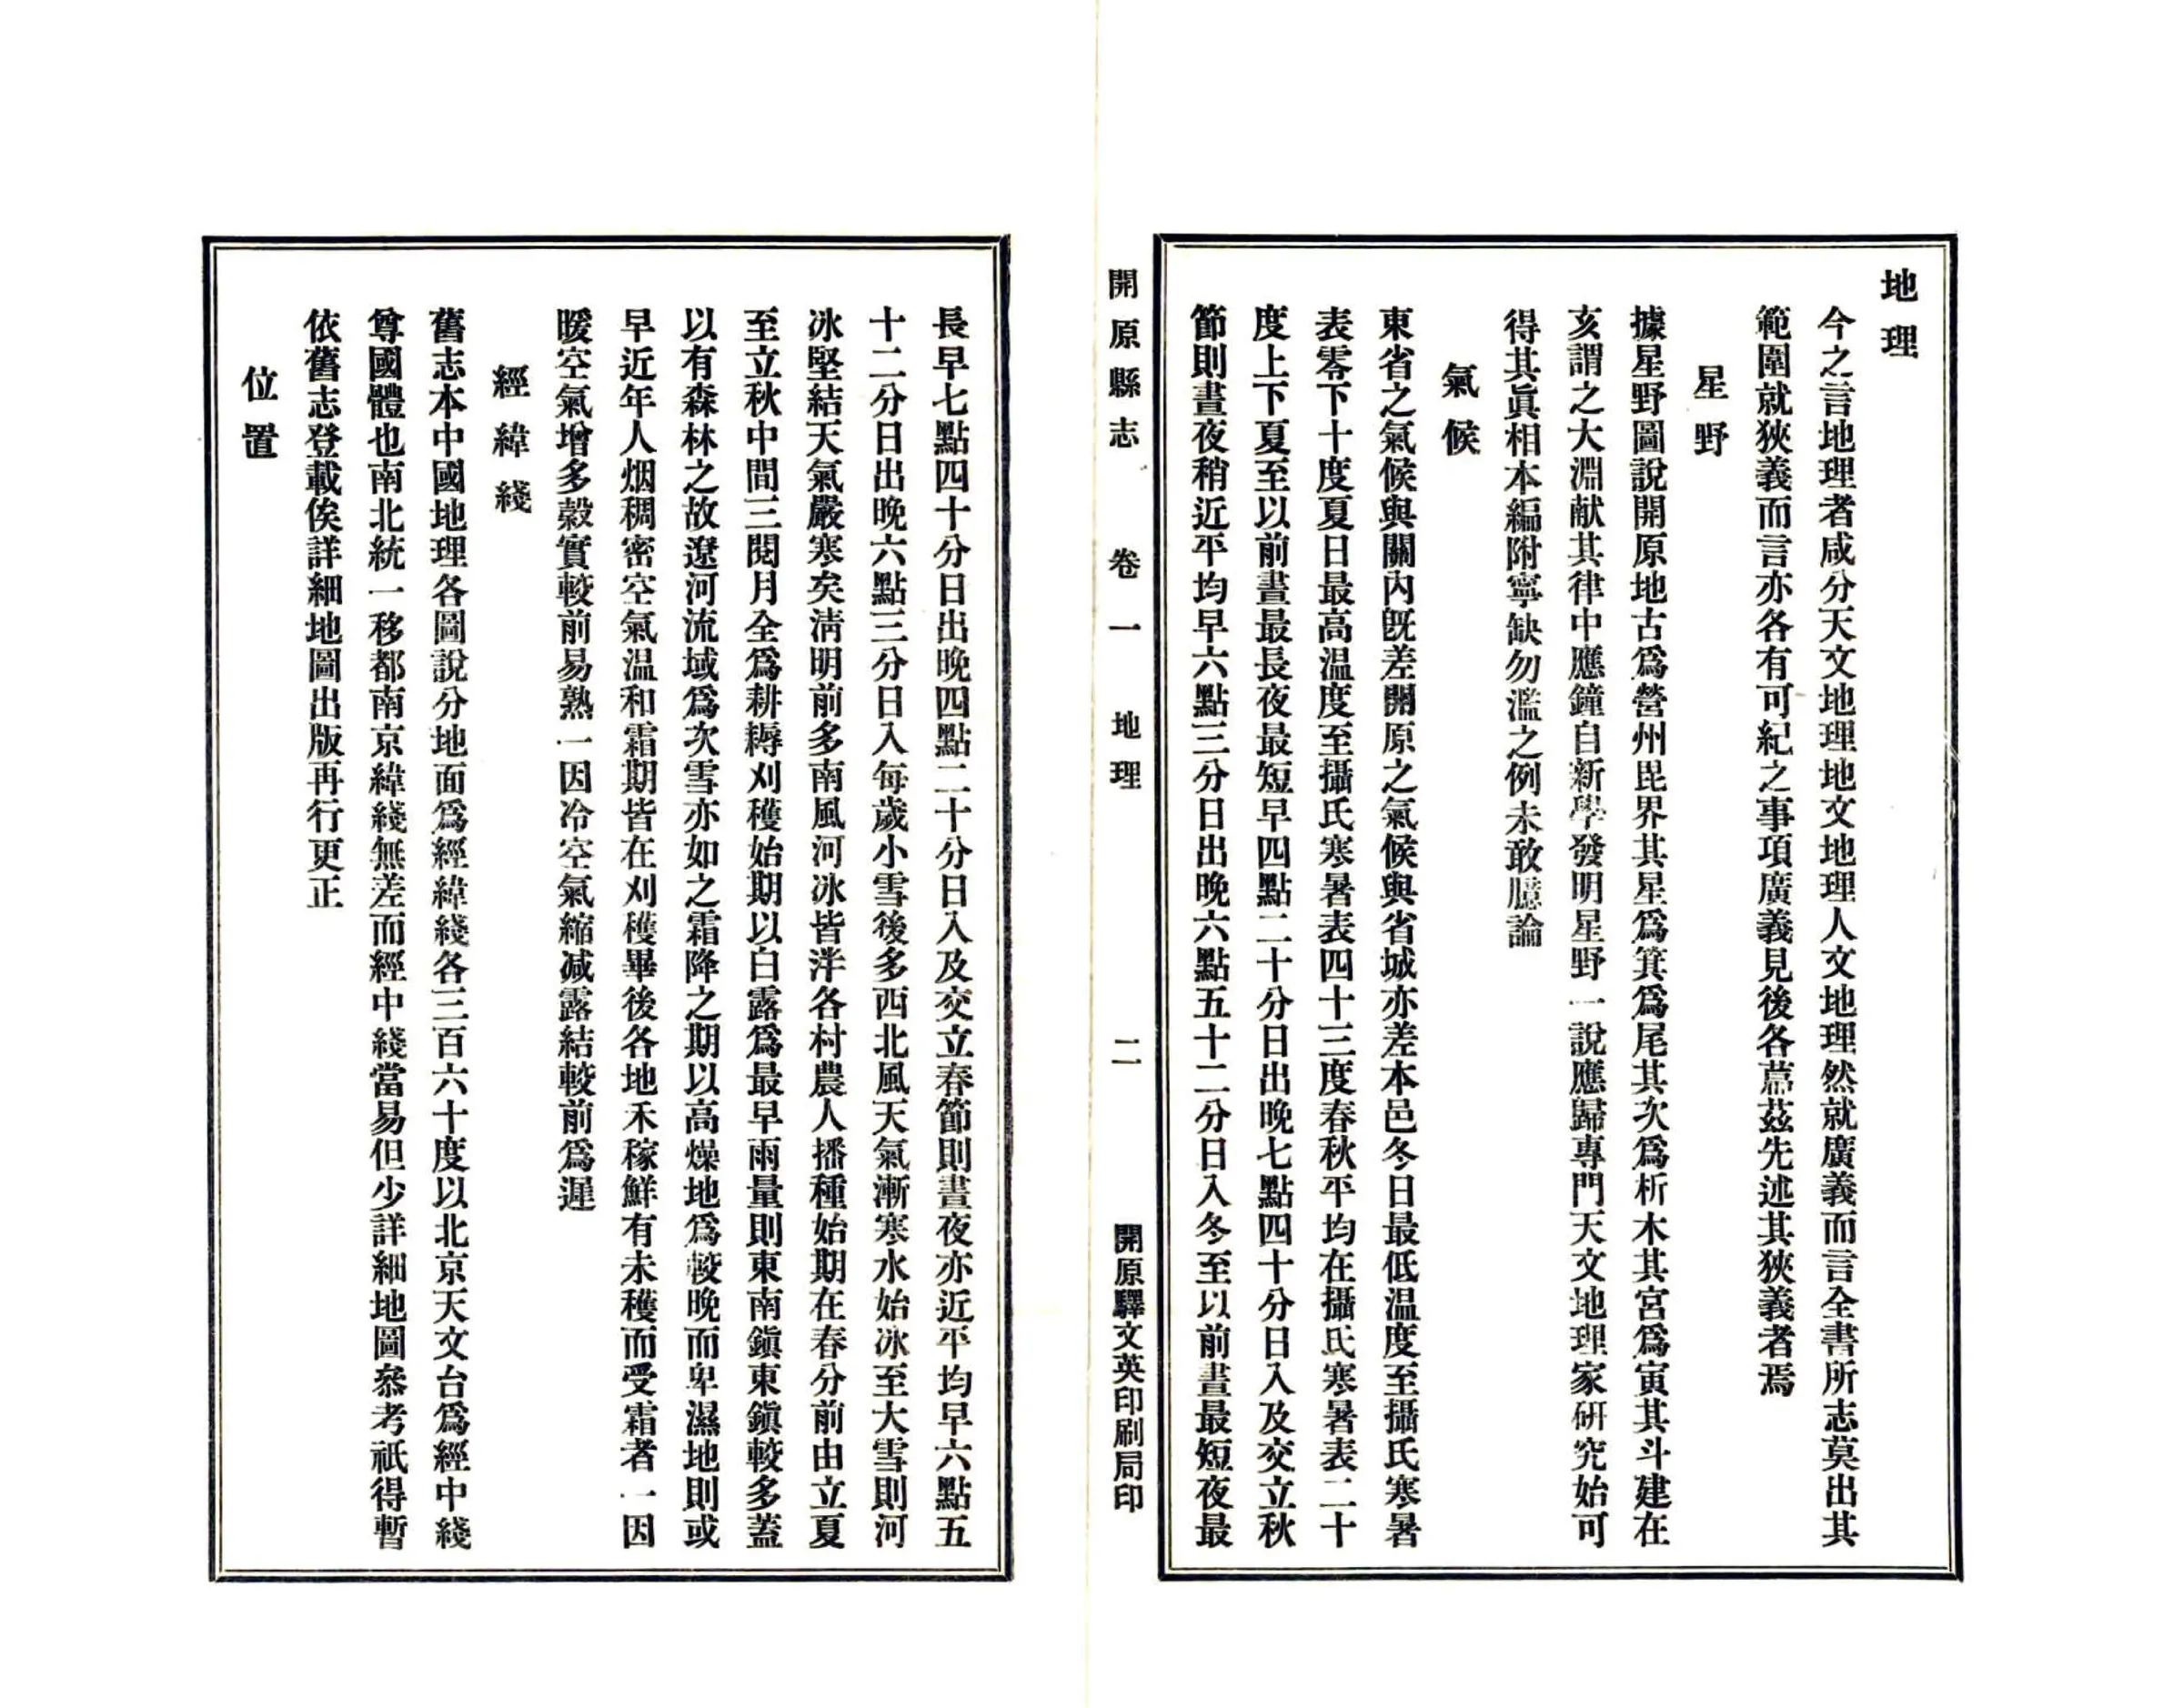 地理
今之言地理者咸分天文地理地文地理人文地理然就廣義而言全書所志莫出其
範圍就狹義而言亦各有可紀之事項廣義見後各篇茲先述其狹義者焉
星野
據星野圖說開原地古爲營州毘界其星爲箕爲尾其次爲析木其宮爲寅其斗建在
亥謂之大淵献其律中應鐘自新學發明星野一說應歸專門天文地理家研究始可
得其眞相本編附寧缺勿濫之例未敢臆論
氣候
東省之氣候與關內既差開原之氣候與省城亦差本邑冬日最低温度至攝氏寒暑
表零下十度夏日最高温度至攝氏寒暑表四十三度春秋平均在攝氏寒暑表二十
度上下夏至以前晝最長夜最短早四點二十分日出晚七點四十分日入及交立秋
節則晝夜稍近平均早六點三分日出晚六點五十二分日入冬至以前晝最短夜最
開原縣志 卷一 地理 二 開原驛文英印刷局印
長早七點四十分日出晚四點二十分日入及交立春節則晝夜亦近平均早六點五
十二分日出晚六點三分日入每歲小雪後多西北風天氣漸寒水始冰至大雪則河
冰堅結天氣嚴寒矣淸明前多南風河冰皆泮各村農人播種始期在春分前由立夏
至立秋中間三閱月全爲耕耨刈穫始期以白露爲最早雨量則東南鎭東鎭較多蓋
以有森林之故遼河流域爲次雪亦如之霜降之期以高燥地爲較晚而卑濕地則或
早近年人烟稠密空氣温和霜期皆在刈穫畢後各地禾稼鮮有未穫而受霜者一因
暖空氣增多穀實較前易熟一因冷空氣縮减露結較前爲遲
經緯綫
舊志本中國地理各圖說分地面爲經緯綫各三百六十度以北京天文台爲經中綫
尊國體也南北統一移都南京緯綫無差而經中綫當易但少詳細地圖叅考祇得暫
依舊志登載俟詳細地圖出版再行更正
位置